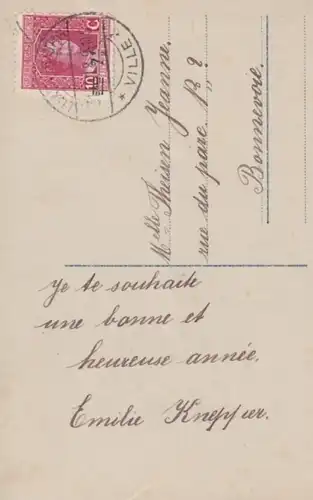 Je te souhaite
une bonne et
heureuse année.
Emilie Knepper.
Melle Theisen Jeanne.
rue du parc
Bonnevoie.
10 C
VILLE